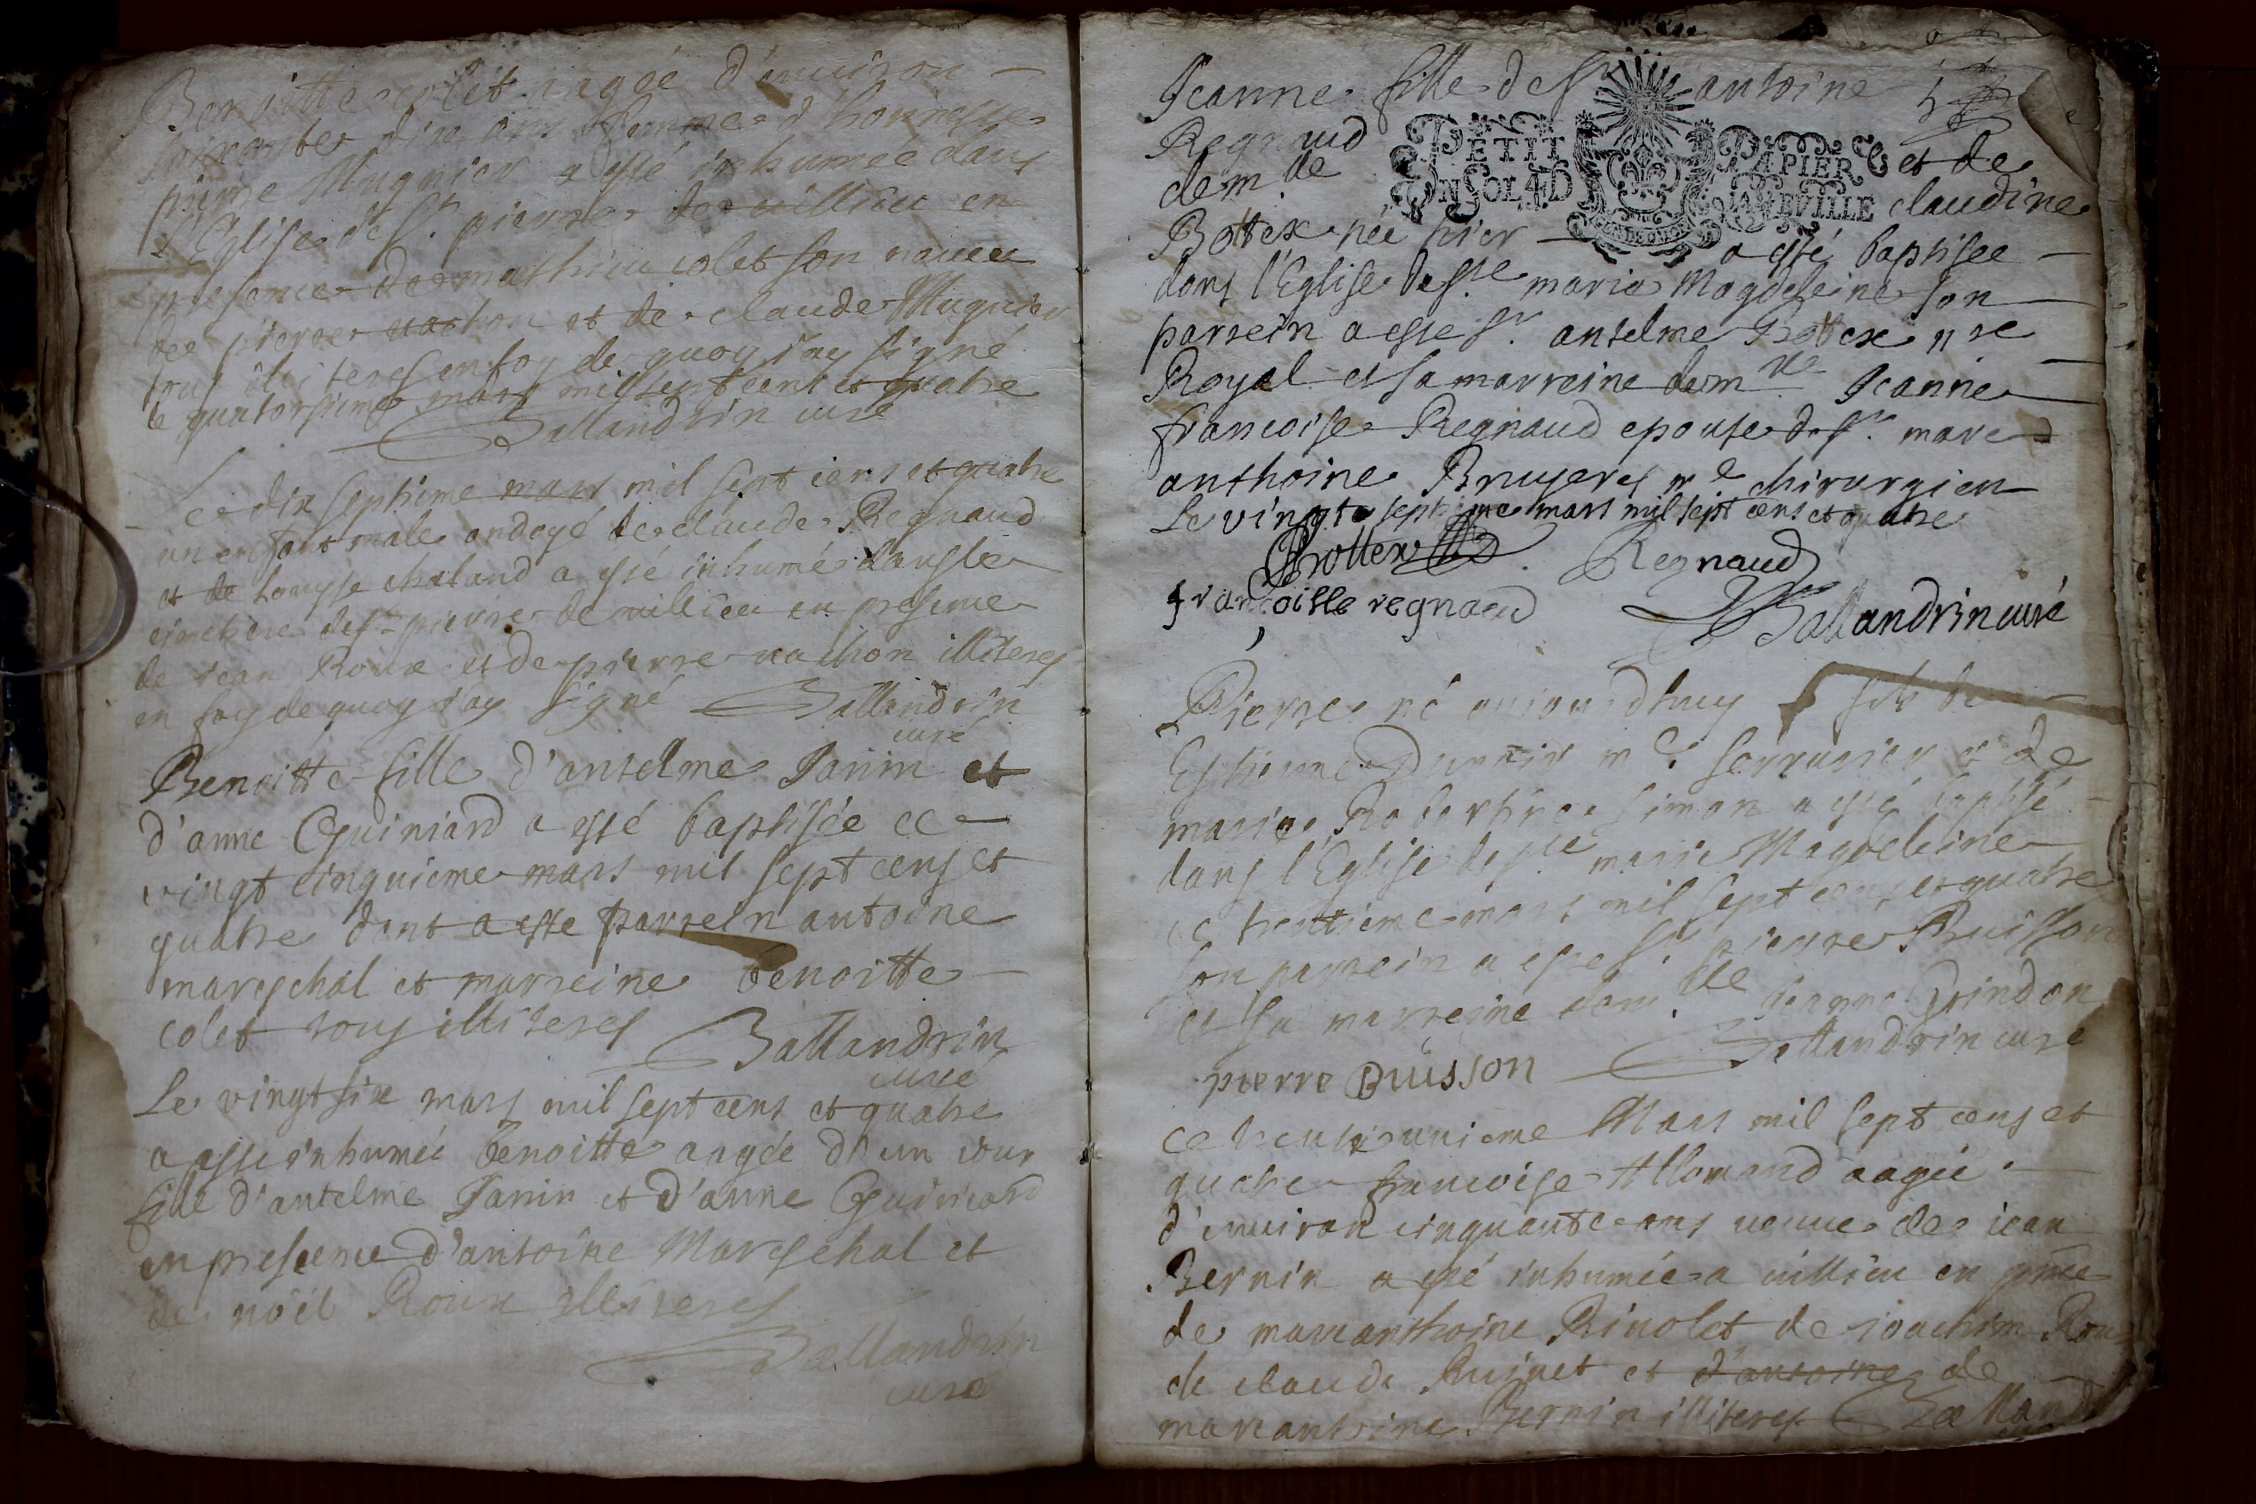 Benoitte colet aagée d'environ
soixante dix ans femme d'honneste
pierre Mugnier a esté inhumée dans
l'Eglise de St. pierre de villieu en
presence de mathieu colet son neveu
de pierre vachon et de claude Mugnier
tous illiteres en foy de quoy j'ay signé
le quatorsieme mars mil sept cent et quatre
Ballandrin curé
Ce dix septieme mars mil sept cens et quatre
un enfant male ondoyé de claude Regnaud
et de Louyse chaland a esté inhumé dans le
cimetiere de St pierre de villieu en presence
de jean Roux et de pierre vachon illiteres
en foy de quoy j'ay signé Ballandrin
curé
Benoitte fille d'anselme Janin et
d'anne Guiniard a esté baptisée ce
vingt cinquieme mars mil sept cens et
quatre dont a esté parrein antoine
mareschal et marreine benoitte
colet tous illiteres Ballandrin
curé
Le vingt six mars mil sept cens et quatre
a esté inhumée benoitte aagée d'un jour
fille d'antelme Janin et d'anne Guiniard
en presence d'antoine Mareschal et
de noël Roux illiteres
Ballandrin
curé
Jeanne fille de Sr antoine
Regnaud et de
dem.lle claudine
PETIT PAPIER
UN SOL 4 D LA FEVILLE
Bottex née hier a esté baptisee
dans l'Eglise de Ste marie Magdeleine son
parrein a esté Sr. antelme Bottex nre
Royal et sa marreine dem.lle Jeanne
francoise Regnaud epouse de Sr. marc
anthoine Bruyeres me chirurgien
Le vingt septieme mars mil sept cens et quatre
Bottex Regnaud
françoisse regnaud Ballandrin curé
Pierre né aujourdhuy fils de
Estienne me serrurier et de
marie simon a esté baptisé
dans l'Eglise de Ste marie Magdeleine
ce trentieme mars mil sept cens et quatre
son parrein a esté Sr. pierre Buisson
et sa marreine dem.lle jeanne Grindon
pierre Buisson Ballandrin curé
Ce trente unieme Mars mil sept cens et
quatre francoise Allomand aagée
d'environ cinquante ans veuve de jean
Bernin a esté inhumée a villieu en pnce
de marcanthoine Rivolet de joachim Roux
de claude et d'antoine de
marcantoine Bernin illiteres Balland